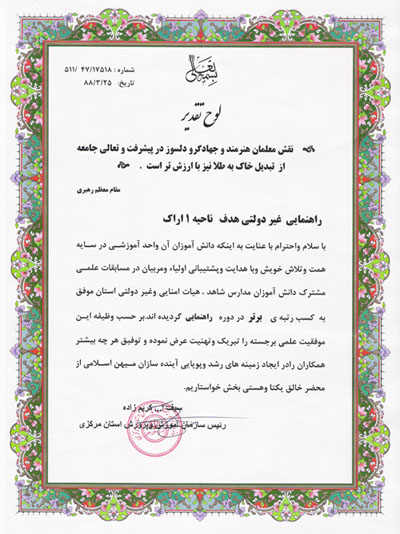 بسمه تعالی
شماره : ۴۷/۱۷۵۱۸ /۵۱۱
تاریخ: ۸۸/۳/۲۵
لوح تقدیر
نقش معلمان هنرمند و جهادگرو دلسوز در پیشرفت و تعالی جامعه
از تبدیل خاک به طلا نیز با ارزش تر است .
مقام معظم رهبری
راهنمایی غیر دولتی هدف ناحیه ۱ اراک
با سلام واحترام با عنایت به اینکه دانش آموزان آن واحد آموزشی در سایه
همت وتلاش خویش وبا هدایت وپشتیبانی اولیاء ومربیان در مسابقات علمی
مشترک دانش آموزان مدارس شاهد ، هیات امنایی وغیر دولتی استان موفق
به کسب رتبه ی برتر در دوره راهنمایی گردیده اند.بر حسب وظیفه این
موفقیت علمی برجسته را تبریک وتهنیت عرض نموده و توفیق هر چه بیشتر
همکاران رادر ایجاد زمینه های رشد وپویایی آینده سازان میهن اسلامی از
محضر خالق یکتا وهستی بخش خواستاریم.
سیف ا... کریم زاده
رئیس سازمان آموزش و پرورش استان مرکزی